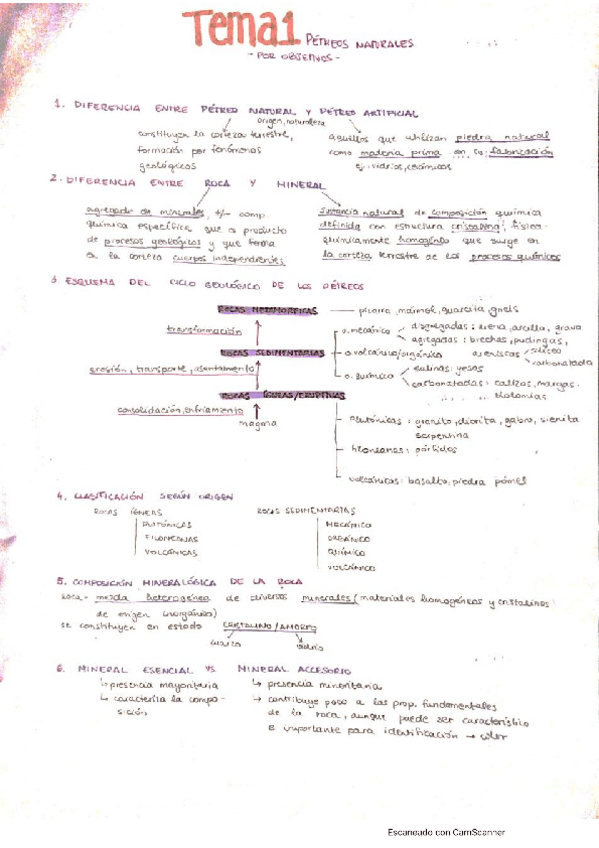 Tema 1 PÉTREOS NATURALES
- POR OBJETIVOS -
1. DIFERENCIA ENTRE PÉTREO NATURAL Y PÉTREO ARTIFICIAL
origen, naturaleza
constituyen la corteza terrestre,
formación por fenómenos
geológicos
aquellos que utilizan piedra natural
como materia prima en su fabricación
ej. vidrios, cerámicos
2. DIFERENCIA ENTRE ROCA Y MINERAL
agregado de minerales, +/- comp.
química específica que a producto
de procesos geológicos y que forma
en la corteza cuerpos independientes
sustancia natural de composición química
definida con estructura cristalina, física-
quimicamente homogénea que surge en
la corteza terrestre de los procesos químicos
3. ESQUEMA DEL CICLO GEOLÓGICO DE LOS PÉTREOS
ROCAS METAMÓRFICAS — pizarra, mármol, cuarcita, gneis
transformación
ROCAS SEDIMENTARIAS
o. mecánico
disgregadas: arena, arcilla, grava
agregadas: brechas, pudingas,
areniscas
silícea
carbonatada
o. volcánico/orgánico
o. químico
salinas: yesos
carbonatadas: calizas, margas.
dolomías
erosión, transporte, asentamiento
ROCAS ÍGNEAS/ERUPTIVAS
consolidación, enfriamiento
magma
plutónicas: granito, diorita, gabro, sienita
serpentina
filonianas: pórfidos
volcánicas: basalto, piedra pómez
4. CLASIFICACIÓN SEGÚN ORIGEN
ROCAS ÍGNEAS
PLUTÓNICAS
FILONIANAS
VOLCÁNICAS
ROCAS SEDIMENTARIAS
MECÁNICO
ORGÁNICO
QUÍMICO
VOLCÁNICO
5. COMPOSICIÓN MINERALÓGICA DE LA ROCA
roca = mezcla heterogénea de diversos minerales (materiales homogéneos y cristalinos
de origen inorgánico)
se constituyen en estado CRISTALINO/AMORFO
cuarzo
vidrio
6. MINERAL ESENCIAL VS MINERAL ACCESORIO
↳ presencia mayoritaria
↳ caracteriza la compo-
sición
↳ presencia minoritaria
→ contribuye poco a las prop. fundamentales
de la roca, aunque puede ser característico
e importante para identificación → color
Escaneado con CamScanner